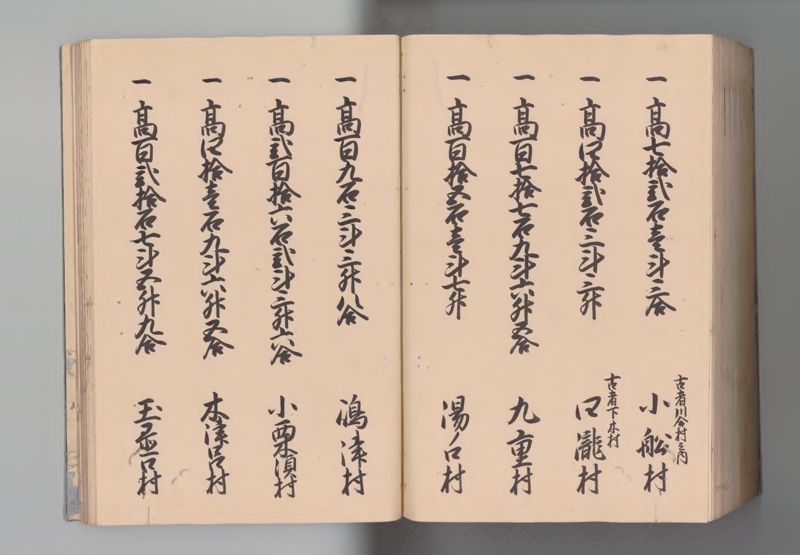 一 高七拾弐石壱斗三合
古者川合村之内
小船村
一 高四拾弐石三斗三升
古者下木村
口瀧村
一 高百七拾七石九斗六升五合
九重村
一 高百拾五石壱斗七升
湯ノ口村
一 高百九石三斗三升八合
鴻津村
一 高弐百拾六石弐斗三升六合
小栗須村
一 高四拾壱石九斗六升五合
木津呂村
一 高百弐拾石七斗五升九合
玉置口村